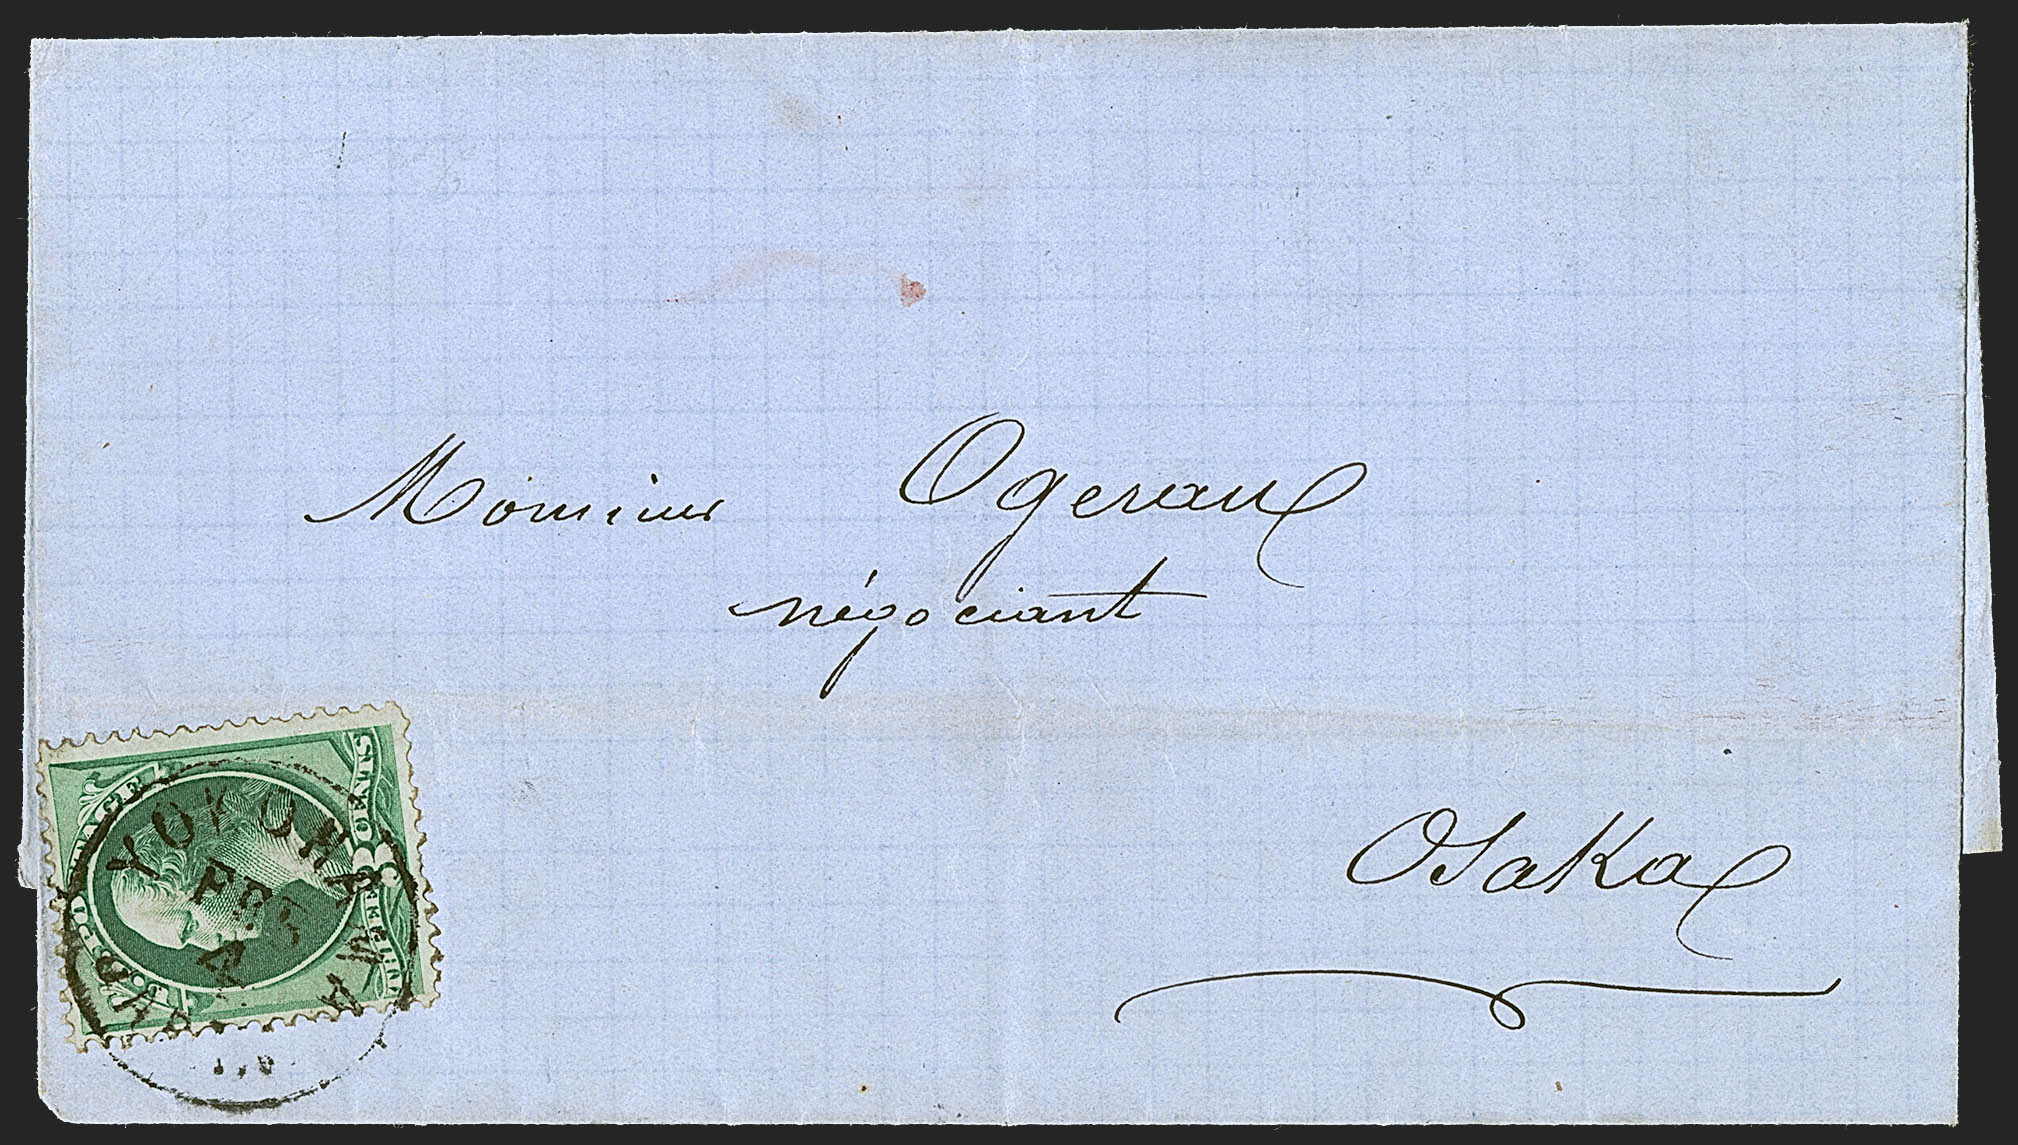 Monsieur Ogeraux
négociant
Osaka
YOKOHAMA
FEB
3
JAPAN
3
CENTS